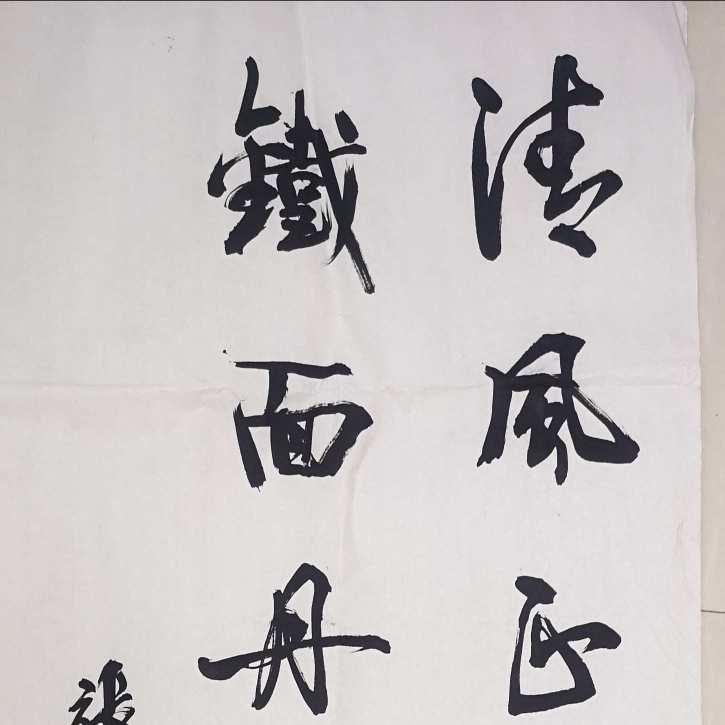 清風正
鐵面丹
張